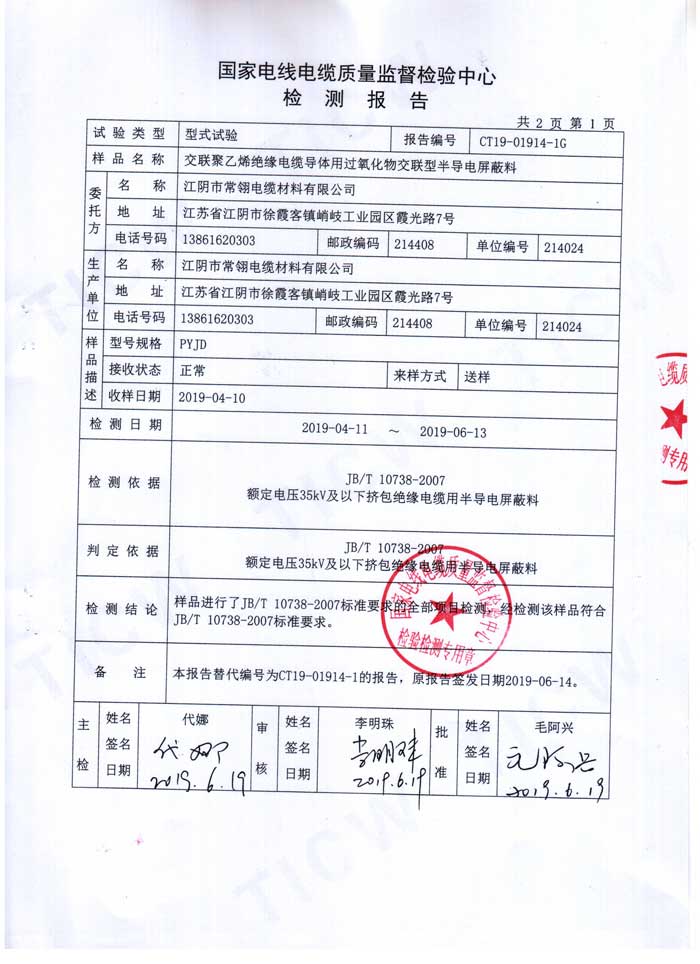 国家电线电缆质量监督检验中心
检 测 报 告
共 2 页 第 1 页
试 验 类 型 型式试验 报告编号 CT19-01914-1G
样 品 名 称 交联聚乙烯绝缘电缆导体用过氧化物交联型半导电屏蔽料
委托方 名 称 江阴市常翎电缆材料有限公司
地 址 江苏省江阴市徐霞客镇峭岐工业园区霞光路7号
电话号码 13861620303 邮政编码 214408 单位编号 214024
生产单位 名 称 江阴市常翎电缆材料有限公司
地 址 江苏省江阴市徐霞客镇峭岐工业园区霞光路7号
电话号码 13861620303 邮政编码 214408 单位编号 214024
样品描述 型号规格 PYJD
接收状态 正常 来样方式 送样
收样日期 2019-04-10
检 测 日 期 2019-04-11 ～ 2019-06-13
检 测 依 据 JB/T 10738-2007
额定电压35kV及以下挤包绝缘电缆用半导电屏蔽料
判 定 依 据 JB/T 10738-2007
额定电压35kV及以下挤包绝缘电缆用半导电屏蔽料
检 测 结 论 样品进行了JB/T 10738-2007标准要求的全部项目检测，经检测该样品符合
JB/T 10738-2007标准要求。
国家电线电缆质量监督检验中心
检验检测专用章
备 注 本报告替代编号为CT19-01914-1的报告，原报告签发日期2019-06-14。
主检 姓名 代娜 审核 姓名 李明珠 批准 姓名 毛阿兴
签名 代娜 签名 李明珠 签名 毛阿兴
日期 2019.6.19 日期 2019.6.19 日期 2019.6.19
电缆质
测专用
TICW